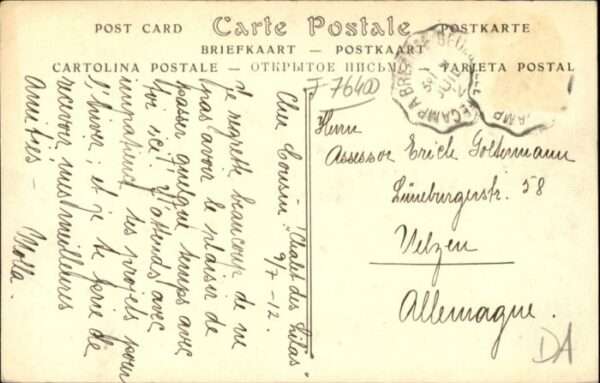 POST CARD Carte Postale POSTKARTE
BRIEFKAART — POSTKAART
CARTOLINA POSTALE — ОТКРЫТОЕ ПИСЬМО — TARJETA POSTAL
J 76400
"Chalet des Lilas"
9/7-12.
Cher Cousin!
Je regrette beaucoup de ne
pas avoir le plaisir de
passer quelque temps avec
toi ici! J'attends avec
impatience tes projets pour
l'hiver; et je te prie de
recevoir mes meilleures
amitiés —
Herrn
Assessor Erich Goltermann
Lüneburgerstr. 58
Uelzen
Allemagne.
DA